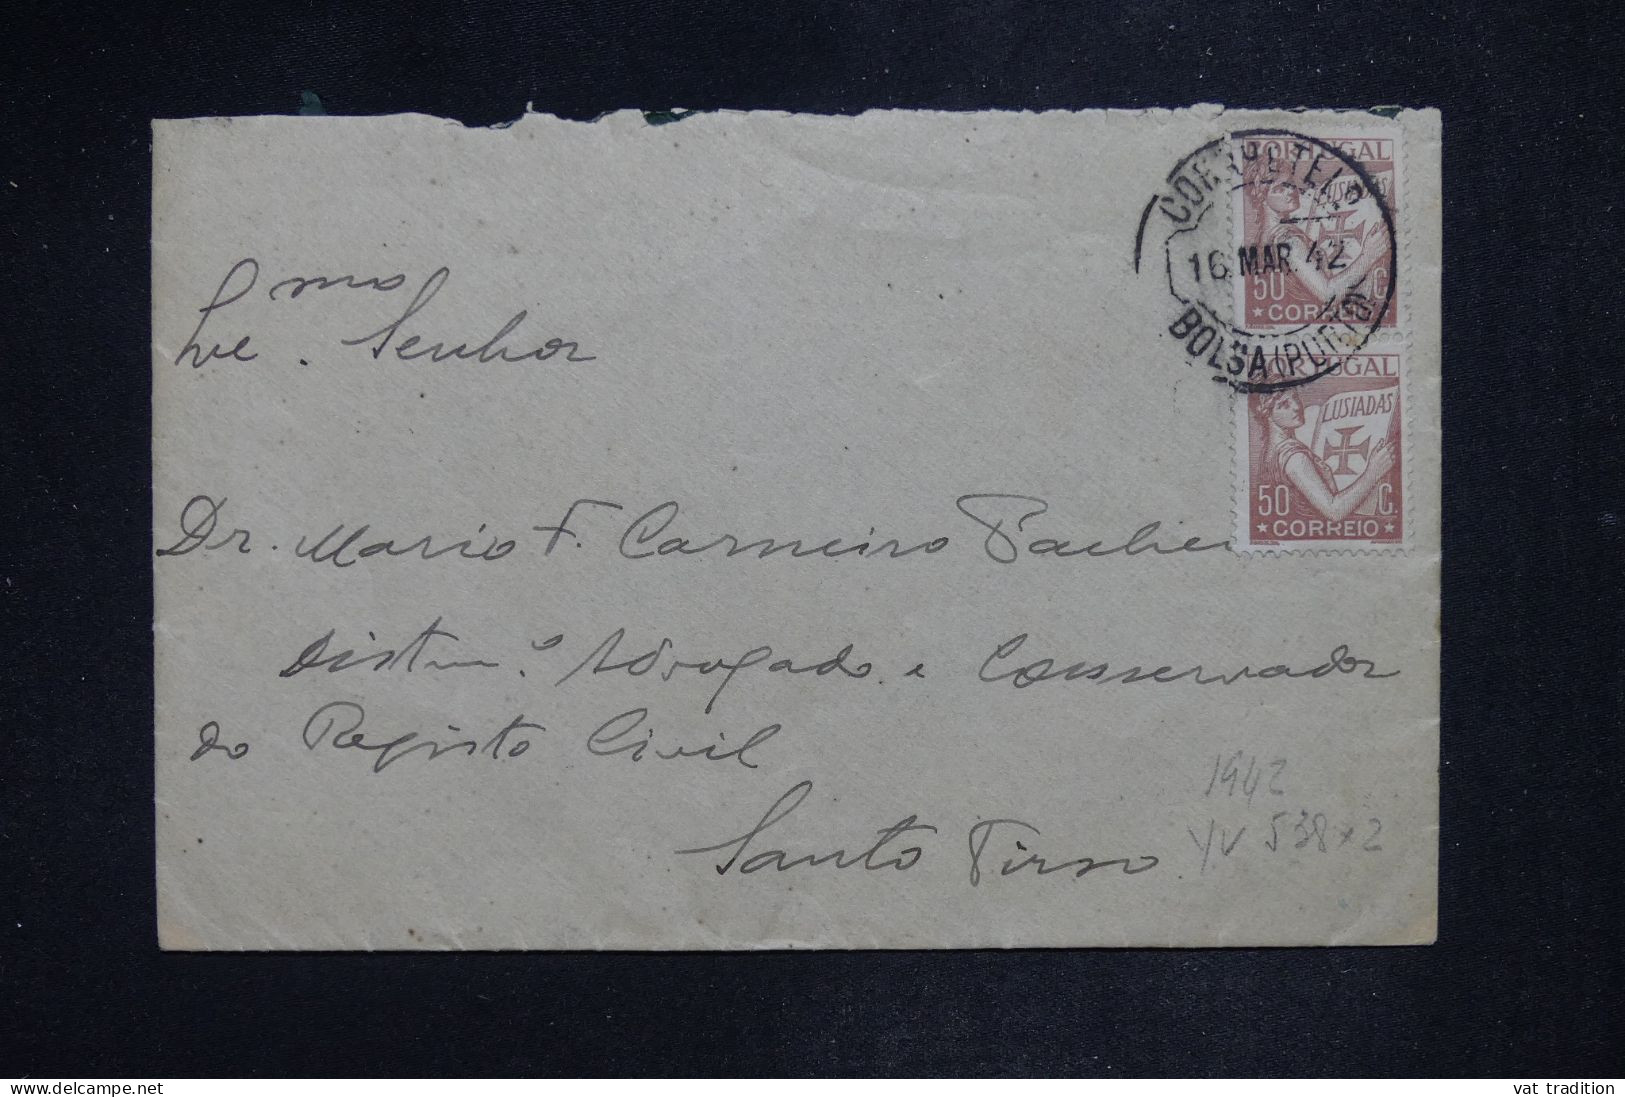 CORR. E TEL.
16 MAR. 42
BOLSA (PORTO)
PORTUGAL
LUSIADAS
50 C.
★ CORREIO ★
PORTUGAL
LUSIADAS
50 C.
★ CORREIO ★
mo
Senhor
Dr. Mario F. Carneiro Pacheco
Distm.º Advogado e Conservador
do Registo Civil
Santo Tirso
1942
YV 538 x 2
www.delcampe.net
vat tradition